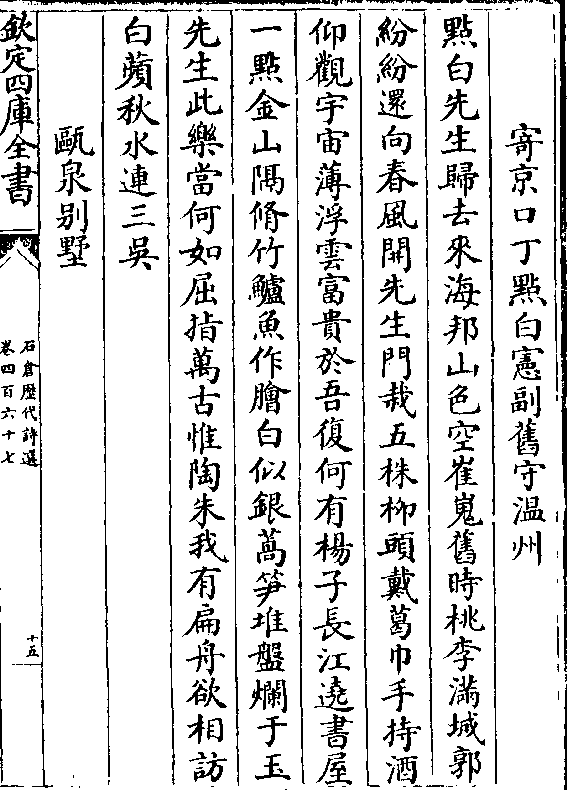 寄京口丁點白憲副舊守温州
點白先生歸去來海邦山色空崔嵬舊時桃李滿城郭
紛紛還向春風開先生門栽五株栁頭戴葛巾手持酒
仰觀宇宙薄浮雲富貴於吾復何有楊子長江遶書屋
一點金山隅脩竹鱸魚作膾白似銀蒿笋堆盤爛于玉
先生此樂當何如屈指萬古惟陶朱我有扁舟欲相訪
白蘋秋水連三吳
甌泉别墅
欽定四庫全書
石倉歴代詩選
卷四百六十七
十五